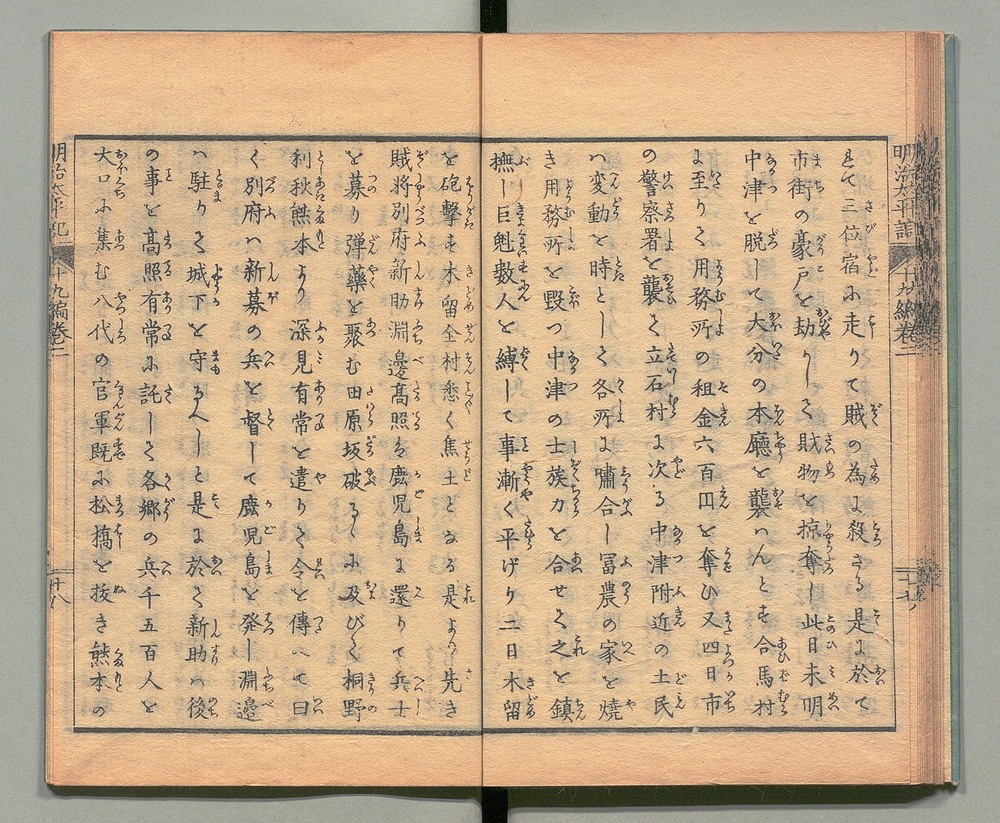 見て三位宿に走りて賊の為に殺さる是に於て
市街の豪戸を劫かして財物を掠奪し此日未明
中津を脱して大分の本廳を襲はんとす合馬村
に至りて用務所の租金六百円を奪ひ又四日市
の警察署を襲て立石村に次る中津附近の土民
ハ変動を時として各所に嘯合し冨農の家を焼
き用務所を毀つ中津の士族力を合せて之を鎮
撫し巨魁数人を縛して事漸く平げり二日木留
を砲撃す木留全村悉く焦土となる是より先き
賊将別府新助淵邊髙照等鹿児島に還りて兵士
を募り弾藥を聚む田原坂破るゝに及びて桐野
利秋熊本より深見有常を遣りて令を傳へて曰
く別府ハ新募の兵を督して鹿児島を発し淵邊
ハ駐りて城下を守るべしと是に於て新助ハ後
の事を髙照有常に託して各郷の兵千五百人を
大口に集む八代の官軍既に松橋を抜き熊本の
明治太平記
十九編巻二
十八